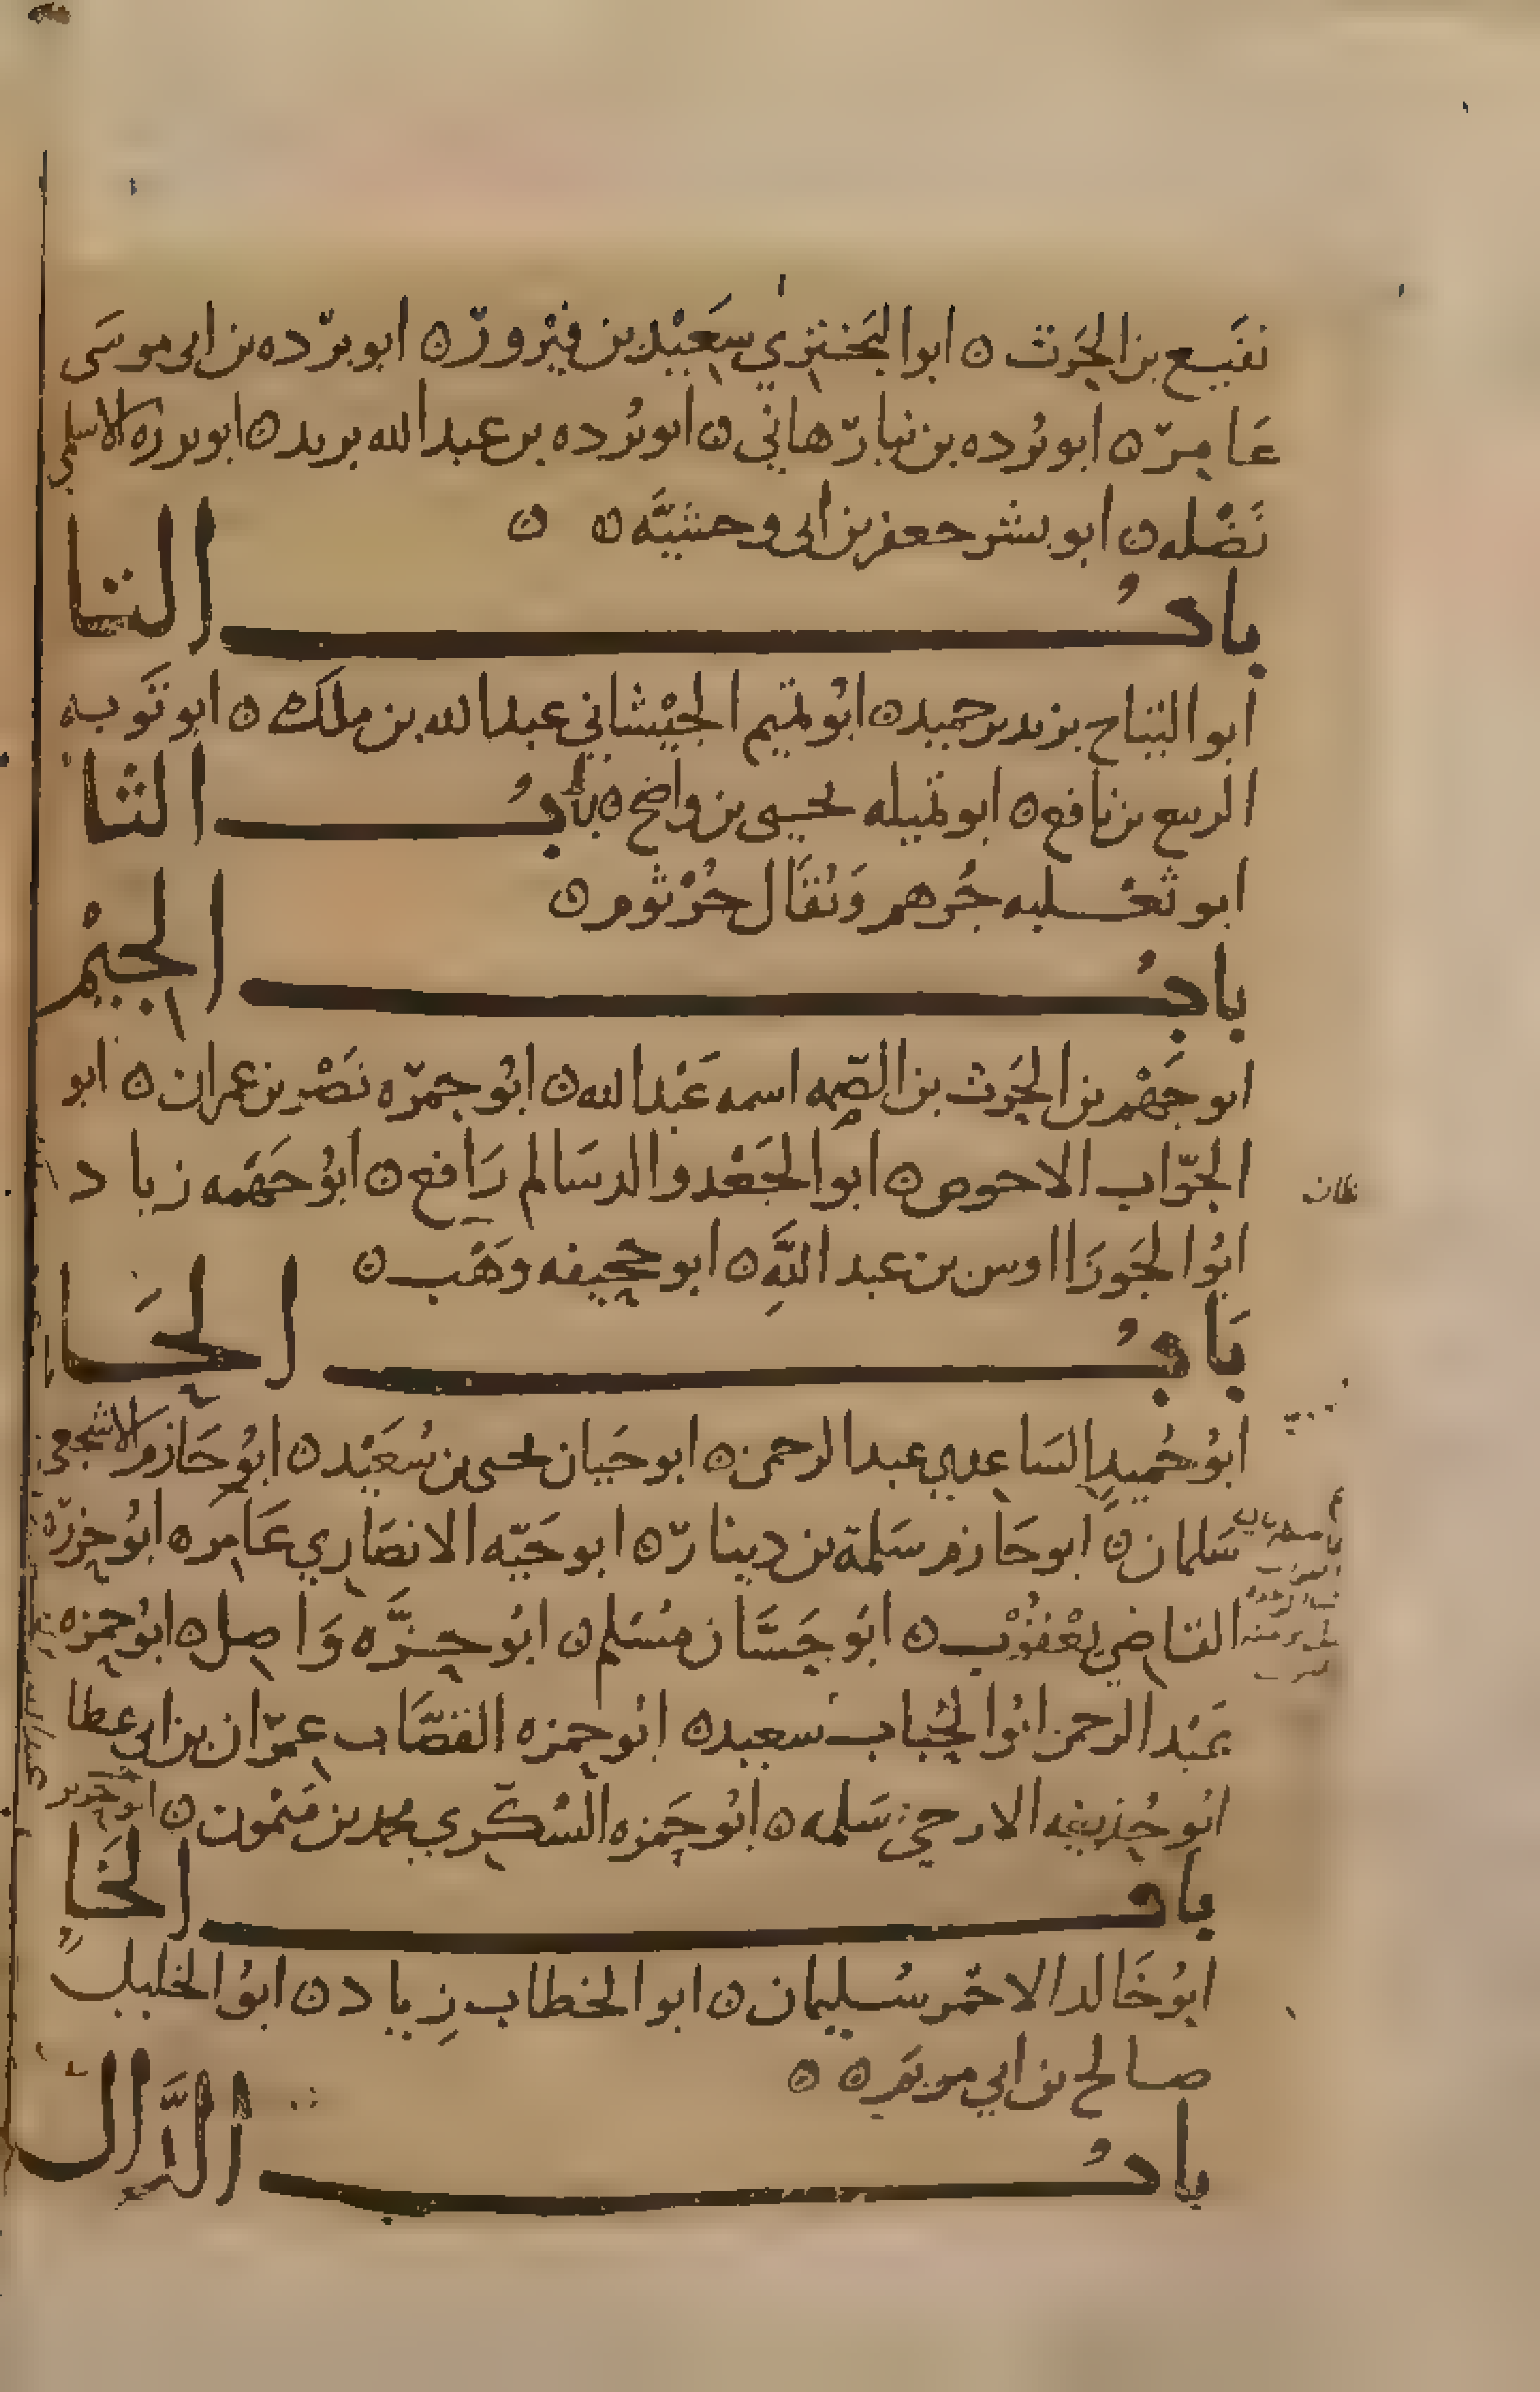 نفَيع بن الحَرث ه ابوا البَختري سَعيْد بن فيْروز ه ابو برده بن ابي موسَى
عَامِر ه ابو بُرده بن نيار هاني ه ابو بُرده بن عبد الله بريد ه ابو برزه الاسلمي
نَضْله ه ابو بشر جعفر بن ابي وحشيَّه ه ه
بابُ التا
ابو التياح يزيد بن حميد ه ابُو تميم الجيْشاني عبد الله بن ملك ه ابو تَوبه
الربيع بن نافع ه ابو تميله يحيى بن واضح ه بابُ الثا
ابو ثعلبه جُرهم وَيُقَال جُرْثوم ه
بابُ الجيْم
ابو جَهْم بن الحَرث بن الصِّمه اسمه عَبْد الله ه ابُو جمره نَصْر بن عمران ه ابو
الجوّاب الاحوص ه ابو الجَعْد والد سَالم رَافع ه ابُو جَهْمه زياد
ابُوا الجَوزَا اوس بن عبد اللَّهِ ه ابو جحيفه وَهْب ه
بَابُ الحَا
ابُو حُميدِ السَاعدي عبد الرحمن ه ابو حَيان يحيى بن سُعَيْد ه ابُو حَازم الاشجعي
سَلمان ه ابو حَازم سَلمة بن دينار ه ابو حَيّه الانصَاري عَامر ه ابُو حزره
القاضي يعْقوْب ه ابُو حَسَّان مُسْلم ه ابُو حرَّه وَاصِل ه ابُو حمزه
عَبْد الرحمن ابُوا الحُباب سعيد ه ابُو حمزه القصَّاب عِمْرَان بن ابي عطا
ابُو حُذيفه الارحبي سَلمه ه ابُو حَمزه السُّكَّري محمد بن مَيْمون ه ابو
باب الخَا
ابُو خَالد الاحْمر سُليمان ه ابو الخطاب زِياد ه ابوُ الخليل
صالح بن ابي مريم ه ه
بابُ الدَّال